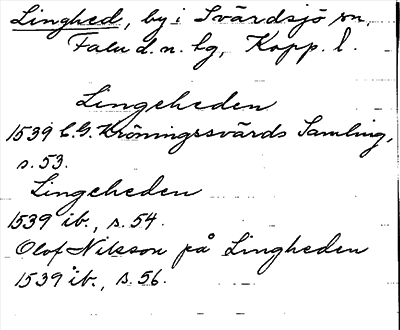 Linghed, by i Svärdsjö sn,
Falu d. n. tg, Kopp. l.
Lingeheden
1539 C.G. Kröningssvärds Samling,
s. 53.
Lingeheden
1539 ib., s. 54.
Olof Nilsson på Lingheden
1539 ib., s. 56.